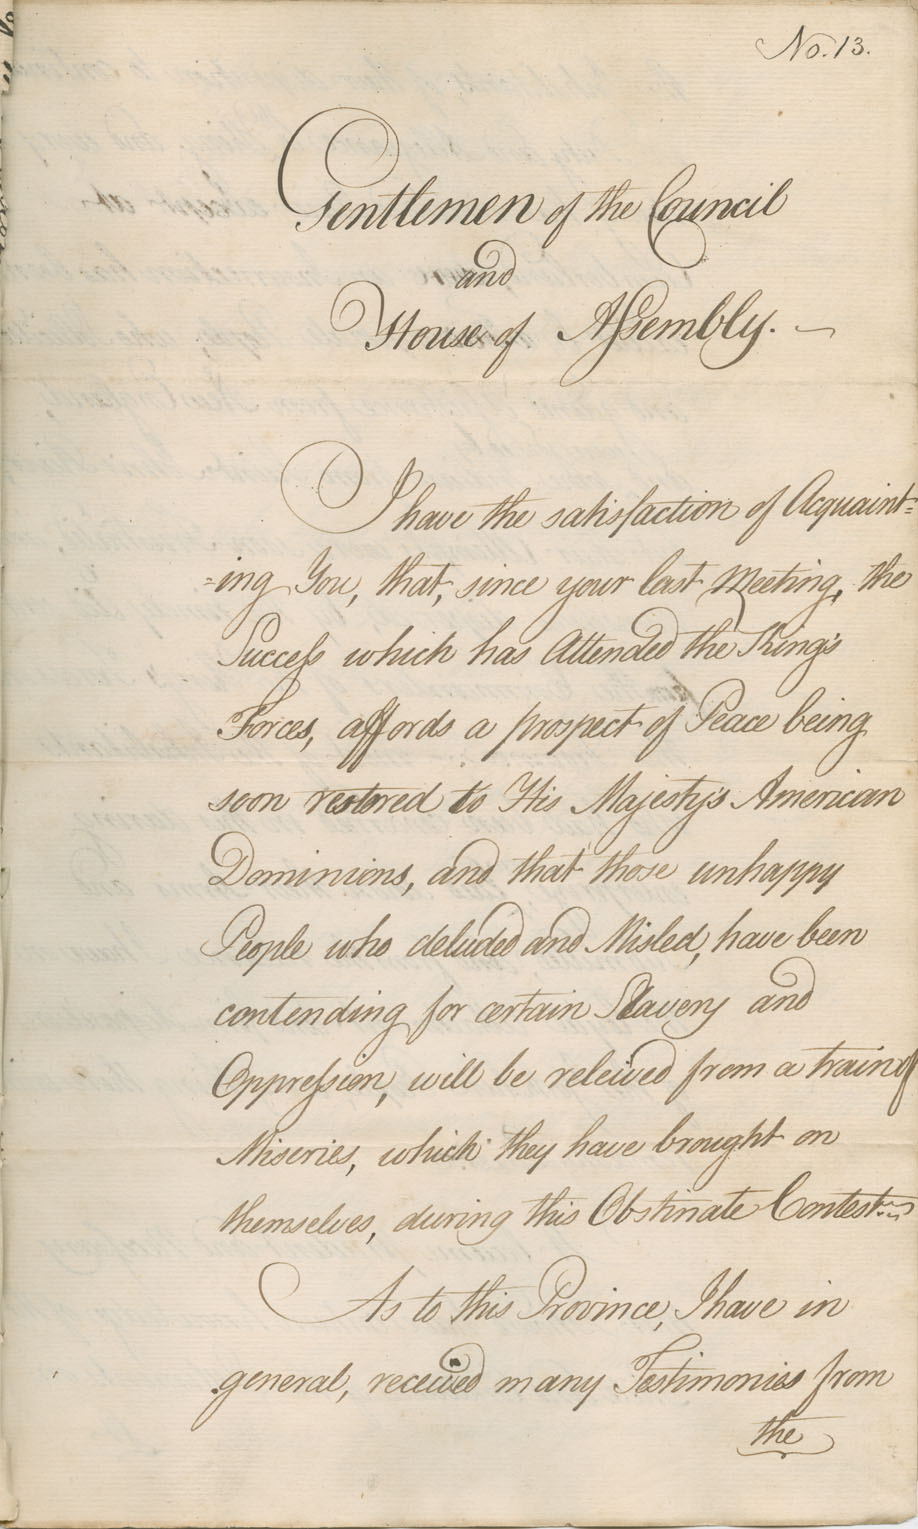 No. 13.
Gentlemen of the Council
and
House of Assembly. —
I have the satisfaction of Acquaint=
=ing You, that, since your last Meeting, the
Success which has Attended the King's
Forces, affords a prospect of Peace being
soon restored to His Majesty's American
Dominions, and that those unhappy
People who deluded and Misled, have been
contending for certain Slavery and
Oppression, will be releived from a train of
Miseries, which they have brought on
themselves, during this Obstinate Contest.
As to this Province, I have in
general, received many Testimonies from
the